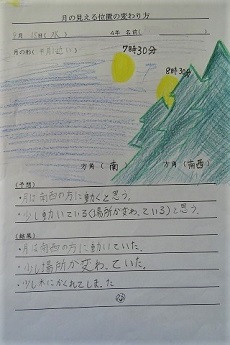 月の見える位置の変わり方
9月 日(水) 4年 名前( )
月の形(半月に近い)
7時30分
8時30分
方角(南) 方角(南西)
(予想)
・月は南西の方に動くと思う。
・少し動いている(場所が変わっている)と思う。
(結果)
・月は南西の方に動いていた。
・少し場所が変わっていた。
・少し木にかくれてしまった